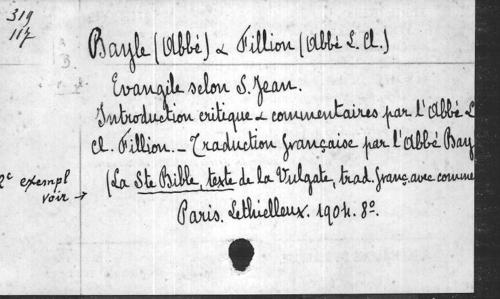 319
117
Bayle (Abbé) & Fillion (Abbé L. Cl.)
Evangile selon S. Jean.
Introduction critique & commentaires par l'Abbé L
Cl. Fillion. _ Traduction française par l'Abbé Bay
2e exempl
voir →
(La Ste Bible, texte de la Vulgate, trad. franç. avec comme
Paris. Lethielleux. 1904. 8o.